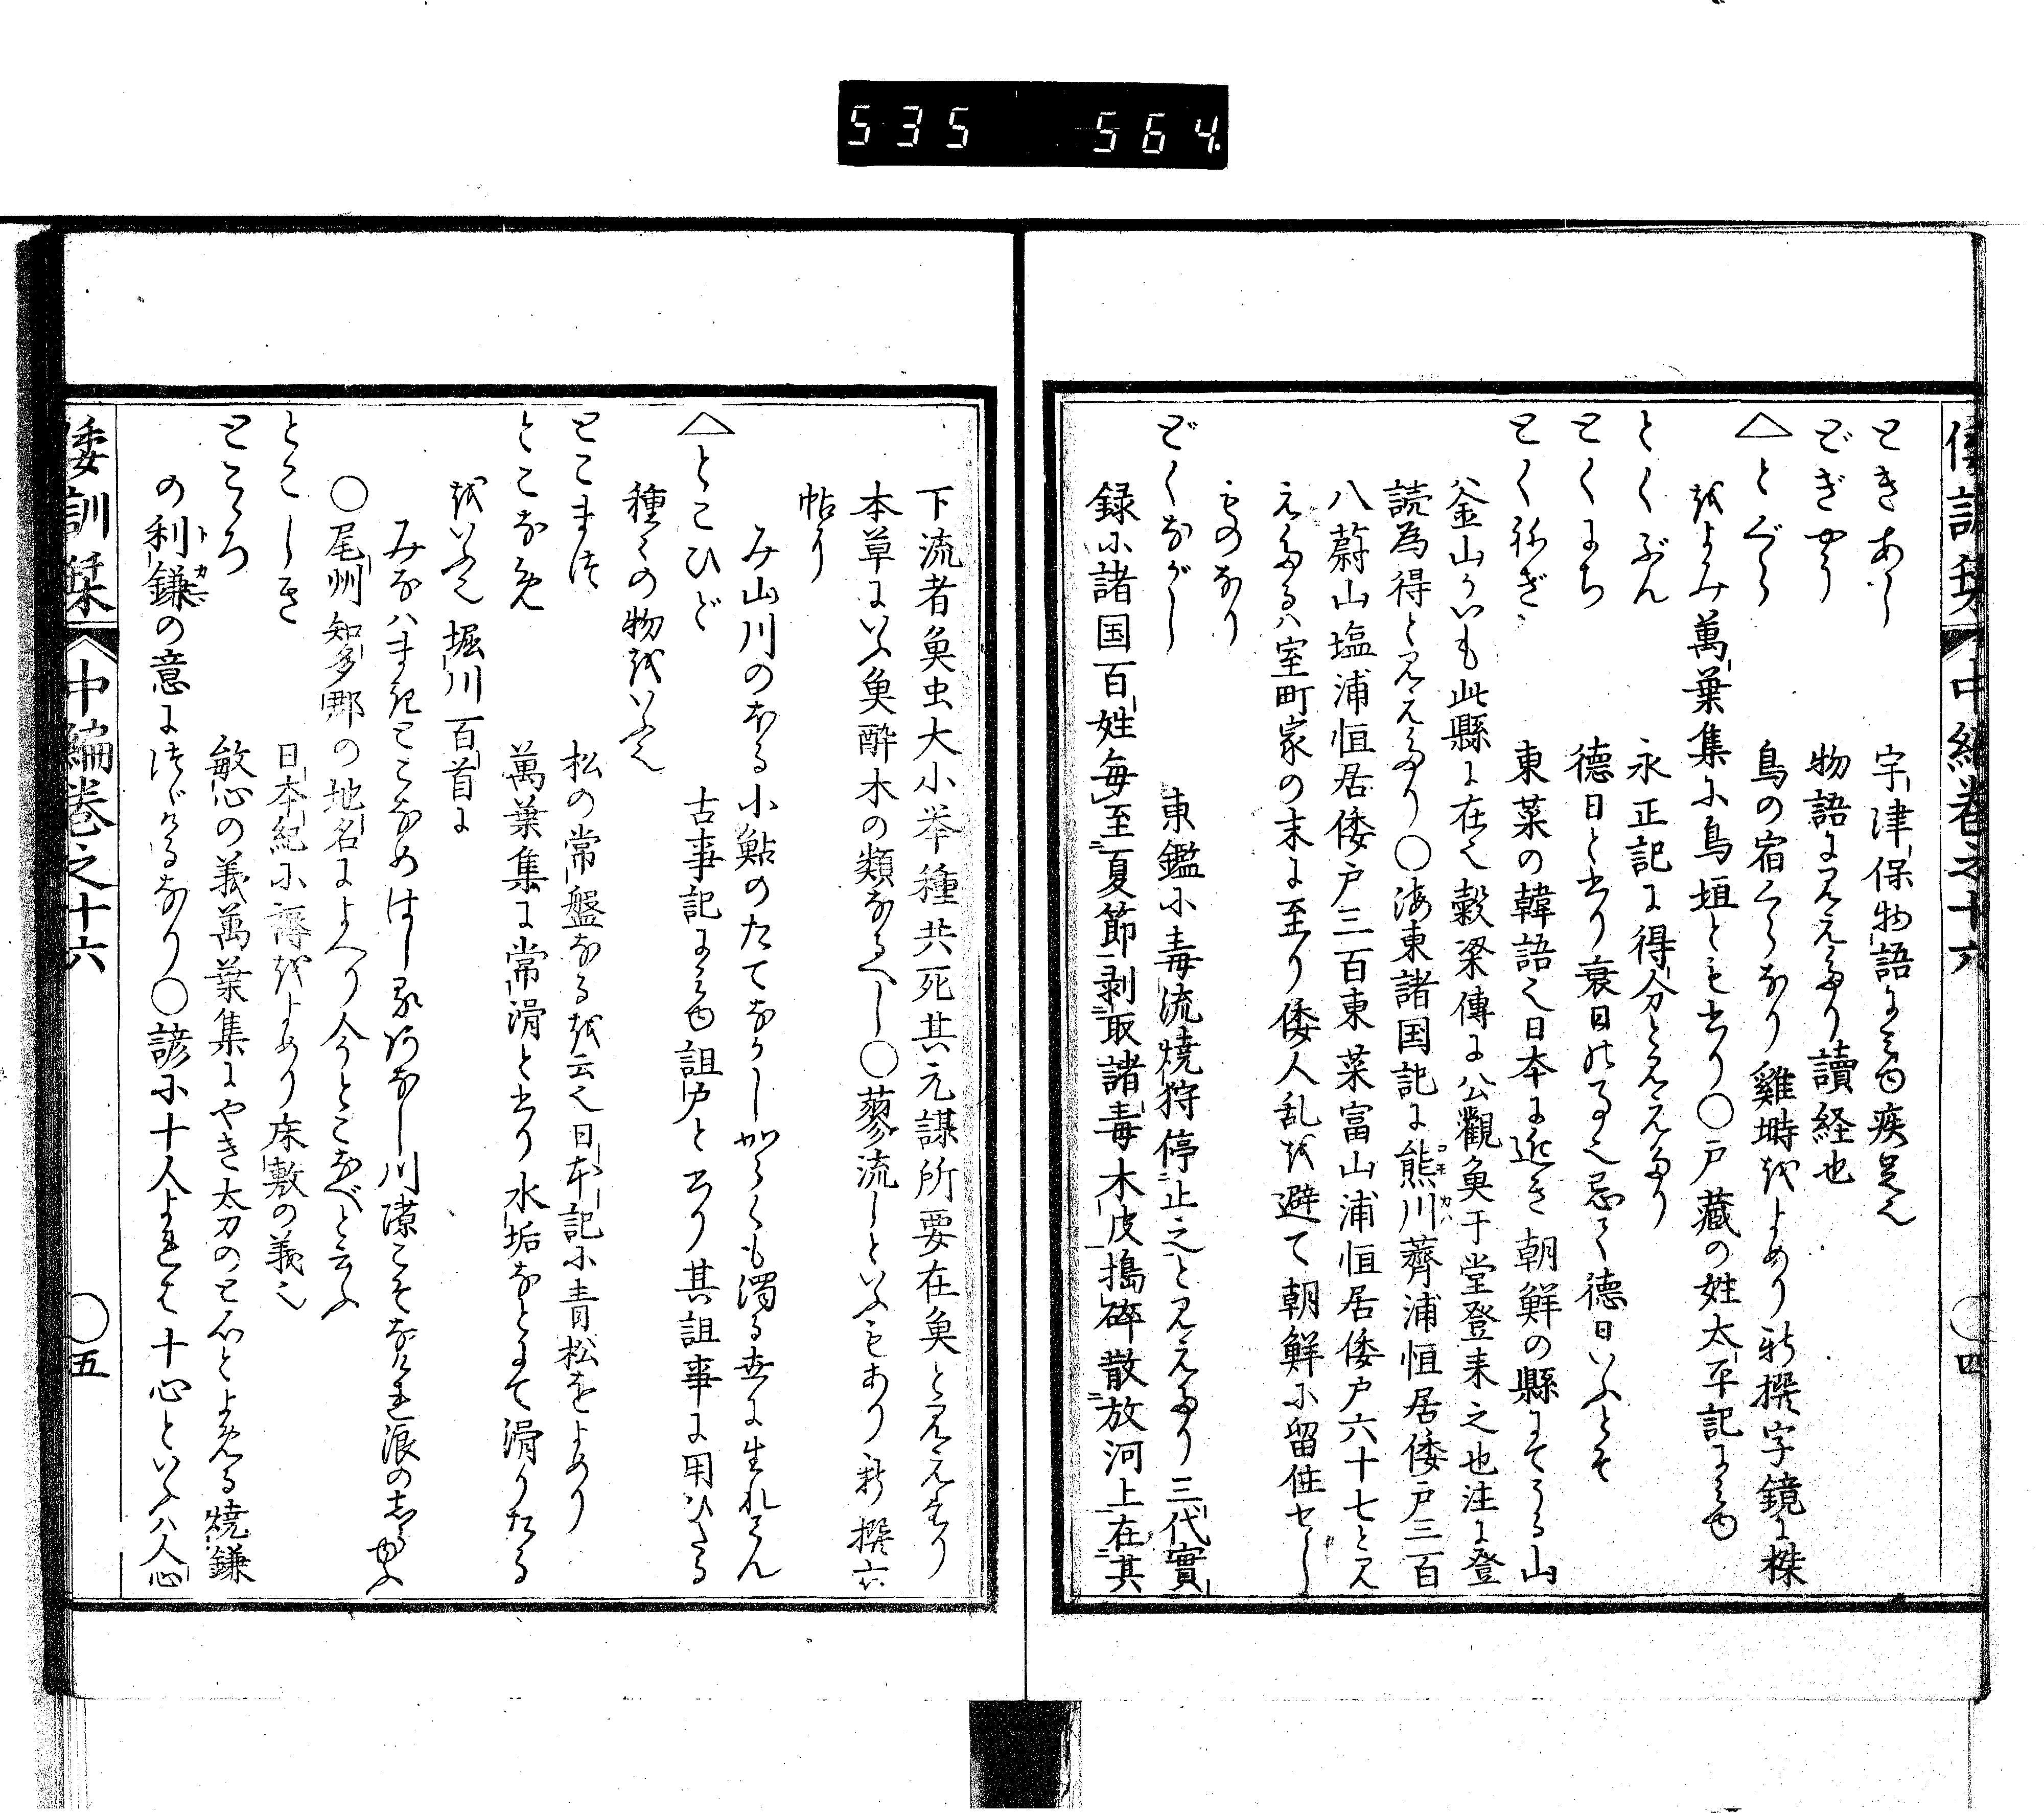 535 564
倭訓栞 中編巻之十六 〇四
ときあし 宇津保物語にみゆ疾足也
どぎやう 物語に見えたり讀経也
△とぐら 鳥の宿くらなり雞塒をよめり新撰字鏡に桀
をよみ萬葉集に鳥垣とも書り〇戸藏の姓太平記にみゆ
とくぶん 永正記に得分と見えたり
とくにち 德日と書り衰日の事也忌て德日いふとそ
とくねぎ 東菜の韓語也日本に近き朝鮮の縣にてうる山
釜山かいも此縣に在也穀梁傳に公觀魚于堂登来之也注に登
読為得と見えたり〇海東諸国記に熊川薺浦恒居倭戸三百
八蔚山塩浦恒居倭戸三百東菜富山浦恒居倭戸六十七と見
えたるハ室町家の末に至り倭人乱を避て朝鮮に留住せし
ものなり
どくながし 東鑑に毒流焼狩停止之と見えたり三代實
録に諸国百姓毎至夏節剥取諸毒木皮搗碎散放河上在其
下流者魚虫大小挙種共死其元謀所要在魚と見えたり
本草にいふ魚醉木の類なるへし〇蓼流しといふもあり新撰六
帖に
み山川のなる小鮎のたてなかしからくも濁る世に生れけん
△とこひど 古事記にみゆ詛戸と書り其詛事に用ひたる
種々の物をいふ也
とこまつ 松の常盤なるを云也日本記に青松をよめり
とこなめ 萬葉集に常滑と書り水垢なとにて滑りたる
をいふ也堀川百首に
みなハまきとこなめはしる河なし川隙こそなけれ浪のしらゆふ
〇尾州知多郡の地名によへり今とこなべと云ふ
とこしき 日本紀に蓐をよめり床敷の義也
とこころ 敏心の義萬葉集にやき太刀のと心とよめる焼鎌
の利鎌の意につゞけるなり〇諺に十人よれは十心といふハ人心
倭訓栞 中編巻之十六 〇五